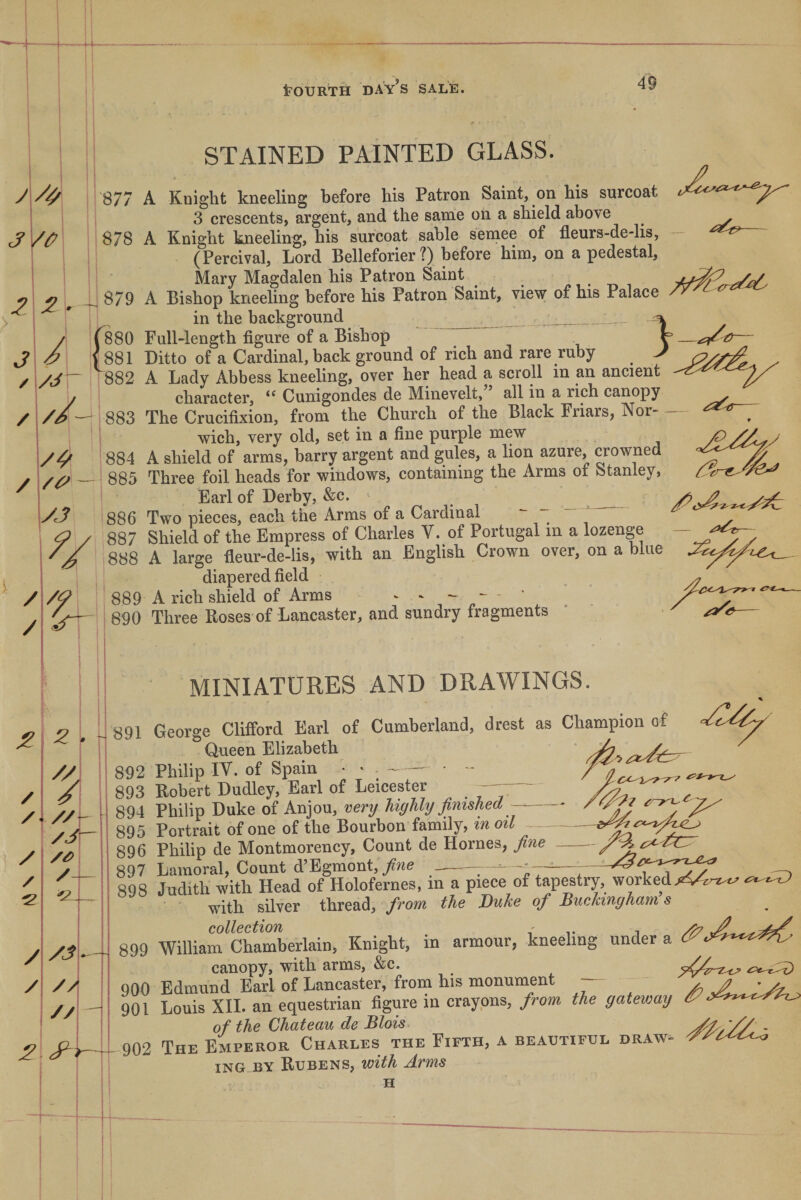 FOURTH DAY'S SALE. 49
STAINED PAINTED GLASS.
877 A Knight kneeling before his Patron Saint, on his surcoat
3 crescents, argent, and the same on a shield above
878 A Knight kneeling, his surcoat sable semee of fleurs-de-lis, do
(Percival, Lord Belleforier?) before him, on a pedestal,
Mary Magdalen his Patron Saint
2 2 879 A Bishop kneeling before his Patron Saint, view of his Palace
in the background
880 Full-length figure of a Bishop
881 Ditto of a Cardinal, back ground of rich and rare ruby do
882 A Lady Abbess kneeling, over her head a scroll in an ancient
character, “ Cunigondes de Minevelt,” all in a rich canopy
883 The Crucifixion, from the Church of the Black Friars, Nor- do
wich, very old, set in a fine purple mew
884 A shield of arms, barry argent and gules, a lion azure, crowned
885 Three foil heads for windows, containing the Arms of Stanley,
Earl of Derby, &c.
886 Two pieces, each the Arms of a Cardinal
887 Shield of the Empress of Charles V. of Portugal in a lozenge do
888 A large fleur-de-lis, with an English Crown over, on a blue
diapered field
889 A rich shield of Arms
890 Three Roses of Lancaster, and sundry fragments do
MINIATURES AND DRAWINGS.
2 2 891 George Clifford Earl of Cumberland, drest as Champion of
Queen Elizabeth
892 Philip IV. of Spain
893 Robert Dudley, Earl of Leicester
894 Philip Duke of Anjou, very highly finished
895 Portrait of one of the Bourbon family, in oil
896 Philip de Montmorency, Count de Hornes, fine
897 Lamoral, Count d'Egmont, fine
898 Judith with Head of Holofernes, in a piece of tapestry, worked
with silver thread, from the Duke of Buckingham's
collection
899 William Chamberlain, Knight, in armour, kneeling under a
canopy, with arms, &c.
900 Edmund Earl of Lancaster, from his monument
901 Louis XII. an equestrian figure in crayons, from the gateway
of the Chateau de Blois
902 THE EMPEROR CHARLES THE FIFTH, A BEAUTIFUL DRAW-
ING BY RUBENS, with Arms
H